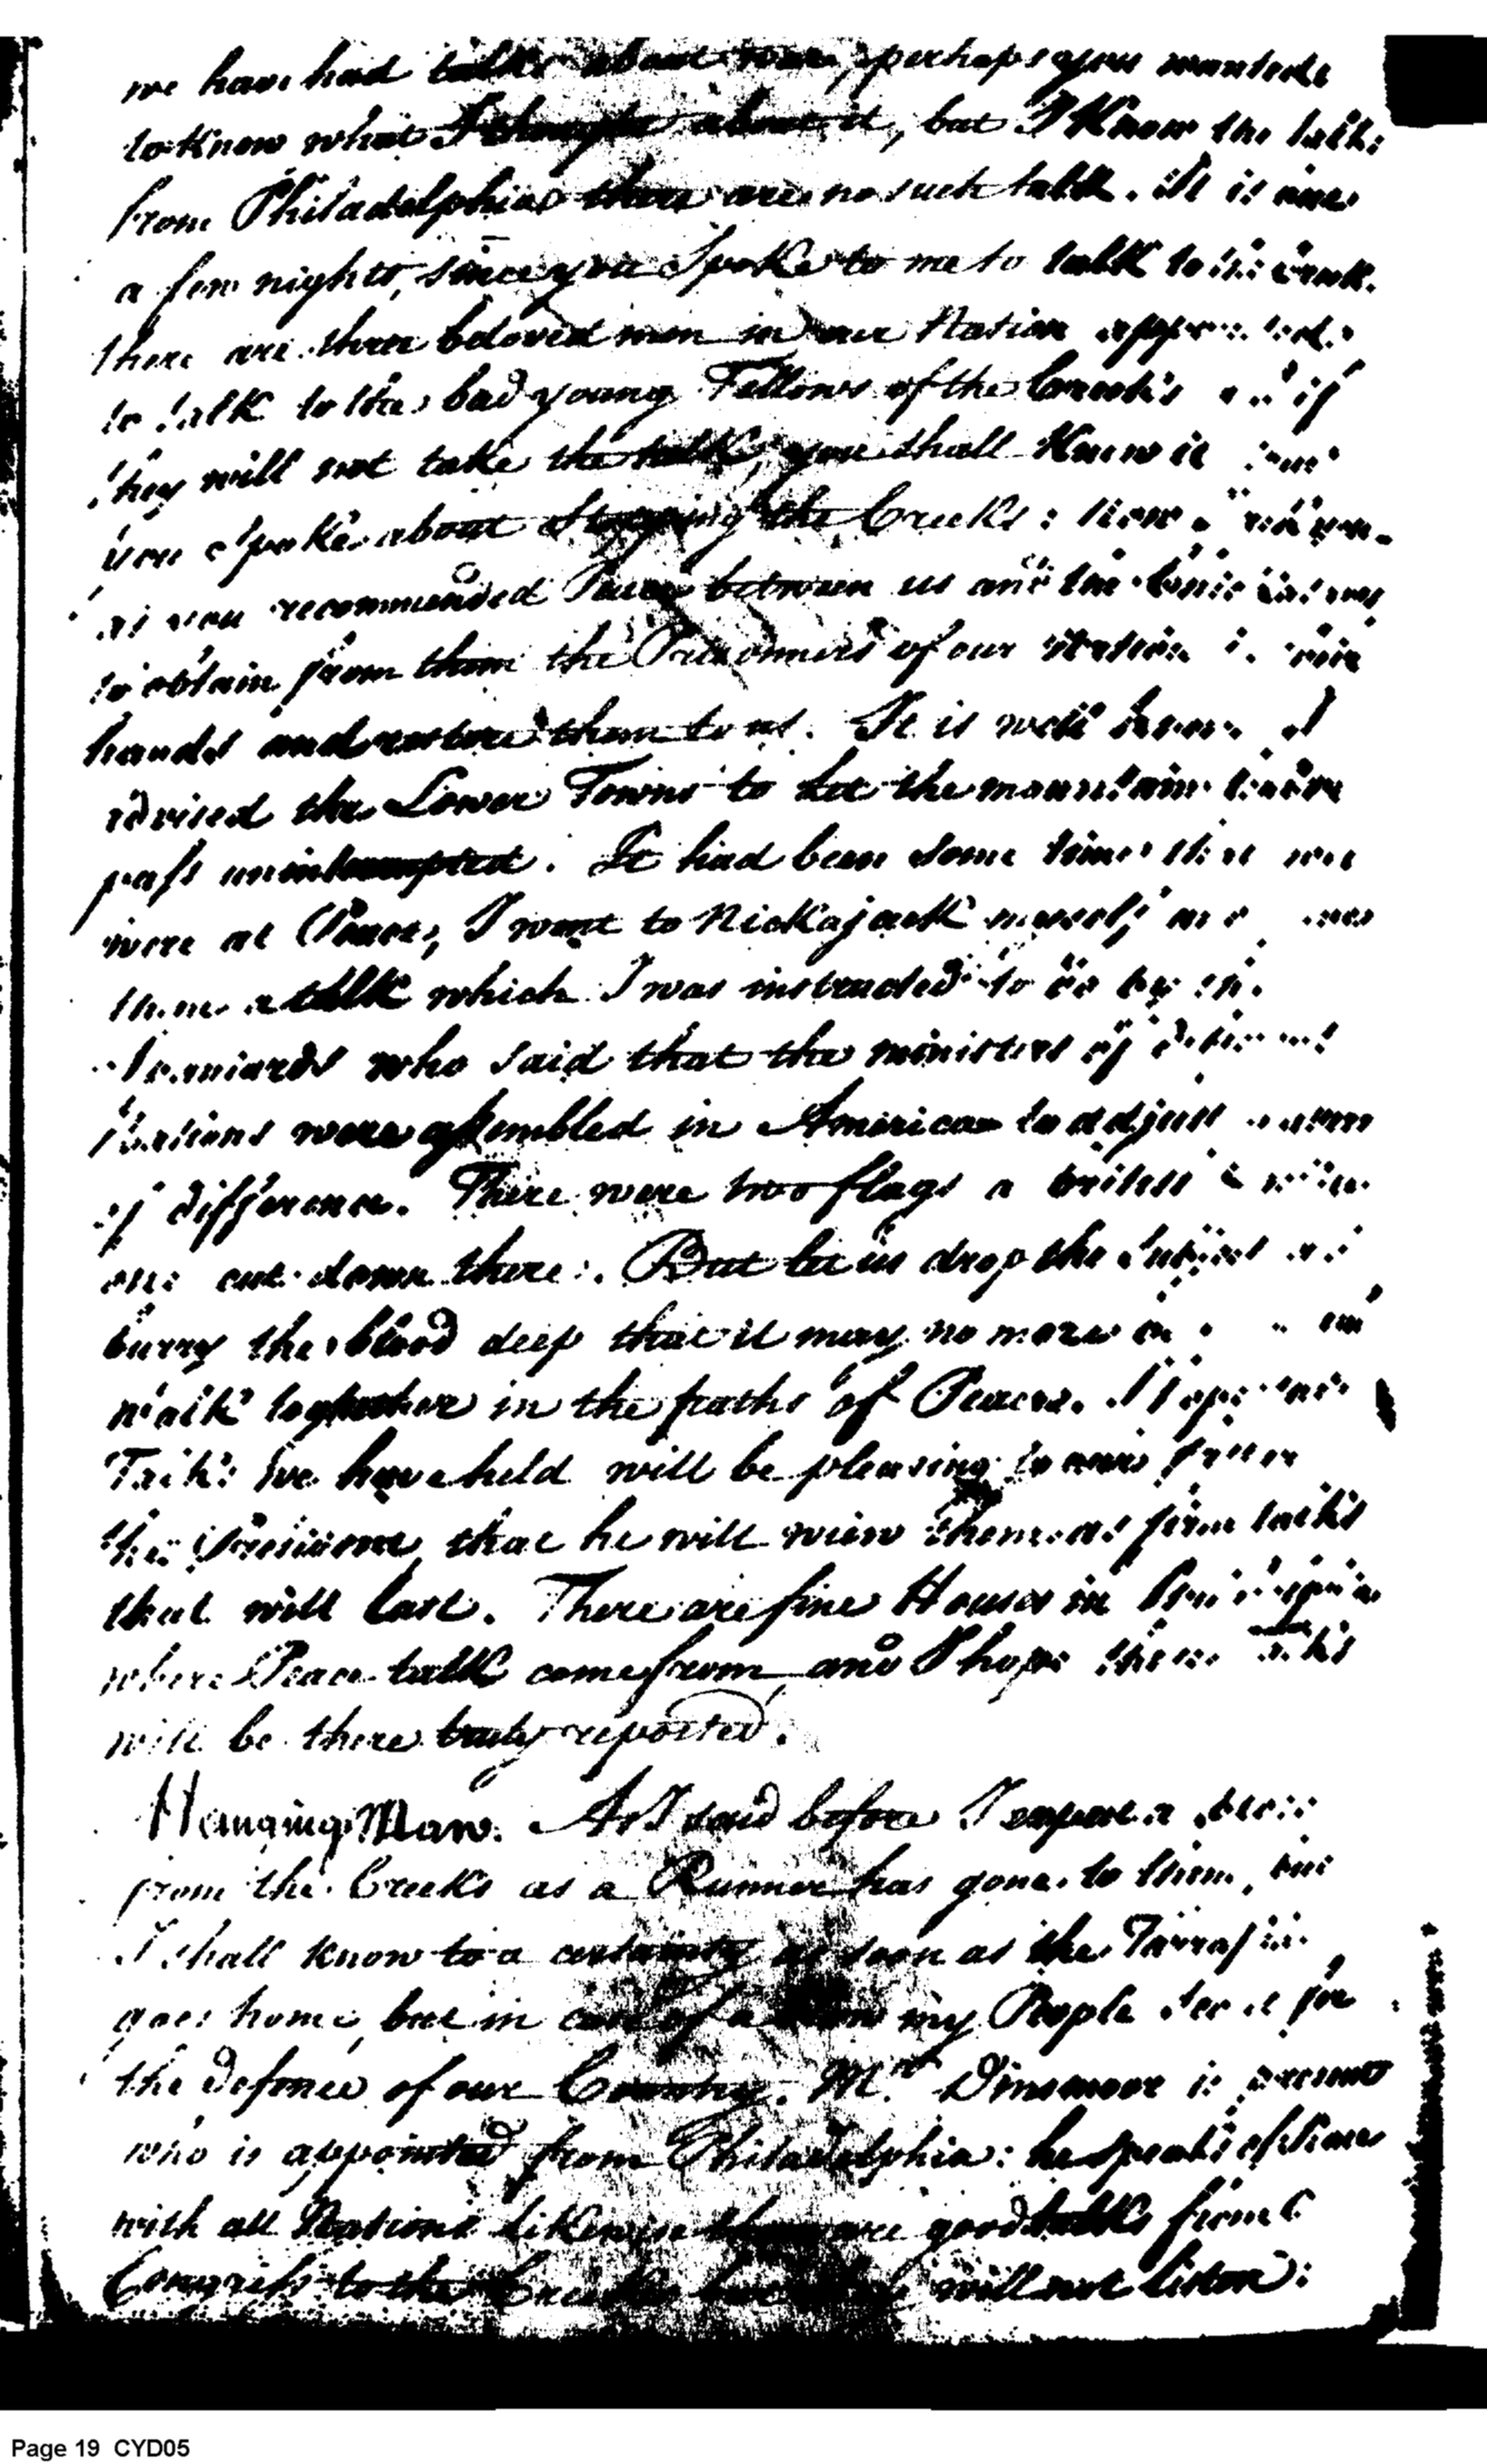 we have had talks about war, perhaps you wanted
to know what I thought about it, but I Know the talks
from Philadelphia there are no such talk. It is
a few nights, since you Spoke to me to talk to
there are three beloved men in our Nation appointed
to talk to the bad young Fellows of the Creeks if
they will not take the talk, you shall Know it
you Spoke about Stopping the Creeks: now
as you recommended Peace between us and the
to obtain from them the Prisonners of our Nation
hands and restore them to us. It is well known I
advised the Lower Towns to let the mountain
pass uninterrupted. It had been some time we
were at Peace, I went to Nickajack myself
them a talk which I was instructed to do by
Spaniards who said that the ministers of different
Nations were assembled in America to adjust
of difference. There were two flags a
one cut down there. But let us drop the Subject
burry the blood deep that it may no more
walk together in the paths of Peace. I hope
Talks we have held will be pleasing to our
the President, that he will view them as firm talks
that will last. There are fine Houses in
where Peace talk come from and I hope these talks
will be there truly reported.
Hanging Maw. As I said before I expect a
from the Creeks as a Runner has gone to them,
I shall know to a certainty as soon as the
goes home, but in case of a my People for
the defence of our Country. Mr. Dinsmoor is present
who is appointed from Philadelphia: he speaks of
with all Nations likewise there are good talks from
Congress to the Creeks but they will not listen:
Page 19 CYD05